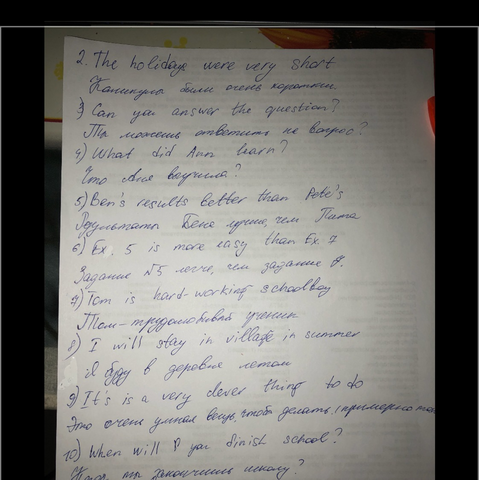 2. The holidays were very short
Каникулы были очень короткими.
3) Can you answer the question?
Ты можешь ответить на вопрос?
4) What did Ann learn?
Что Аня выучила?
5) Ben's results better than Pete's
Результаты Бена лучше, чем Пита
6) Ex. 5 is more easy than Ex. 7
Задание №5 легче, чем задание 7.
7) Tom is hard-working schoolboy
Том - трудолюбивый ученик
8) I will stay in village in summer
Я буду в деревне летом
9) It's is a very clever thing to do
Это очень умная вещь, чтоб делать, (примерно так
10) When will you finish school?
Когда ты закончишь школу?